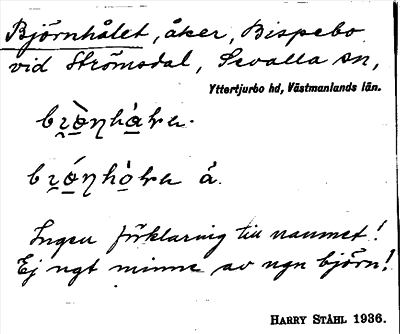 Björnhålet, åker, Bispebo
vid Strömsdal, Sevalla sn,
Yttertjurbo hd, Västmanlands län.
å.
Ingen förklaring till namnet!
Ej ngt minne av ngn björn!
HARRY STÅHL 1936.